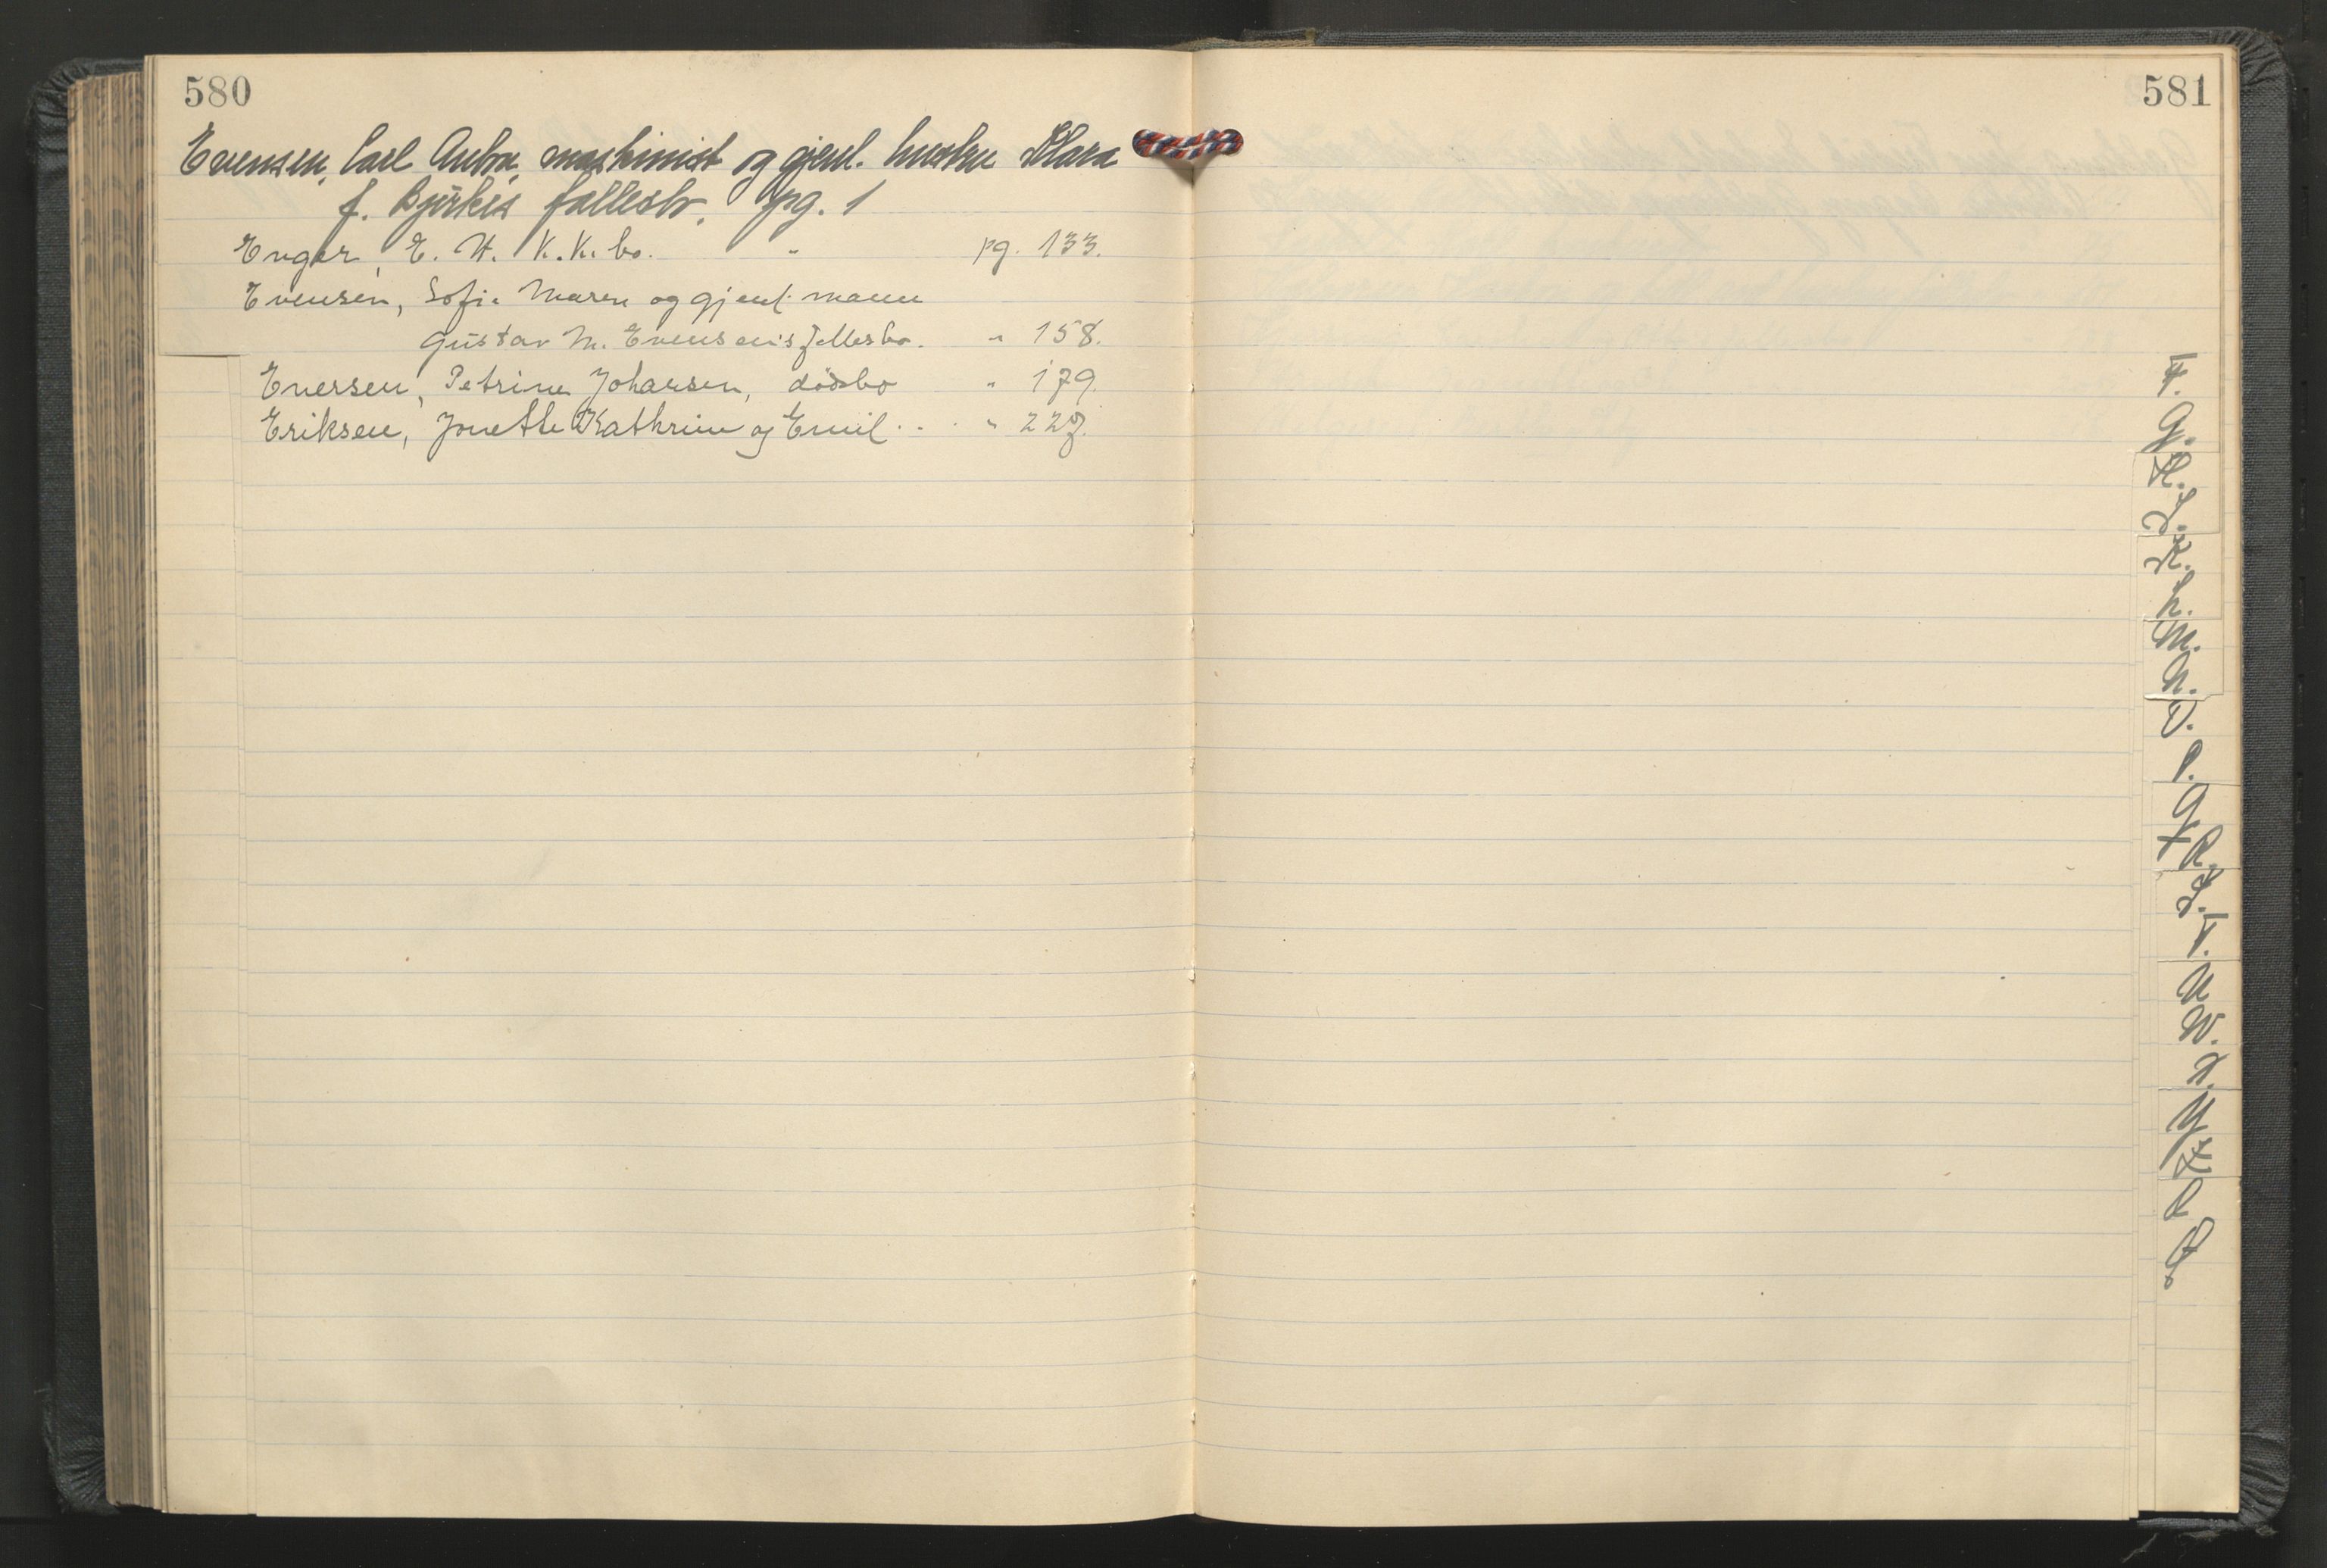 580
Evensen, Carl Anton, maskinist og gjenl. hustru Klara
f. Bjerkés fellesbo. pg. 1
Enger, E. W. K.K. bo. " pg. 133.
Evensen, Sofie Maren og gjenl. mann
Gustav M. Evensen's fellesbo. " 158.
Eversen, Petrine Johansen, dødsbo " 179.
Eriksen, Jonette Kathrine og Emil . . . " 227.
581
F.
G.
H.
I.
K.
L.
M.
N.
O.
P.
Q
R.
S.
T.
U
W.
X.
Y
Z